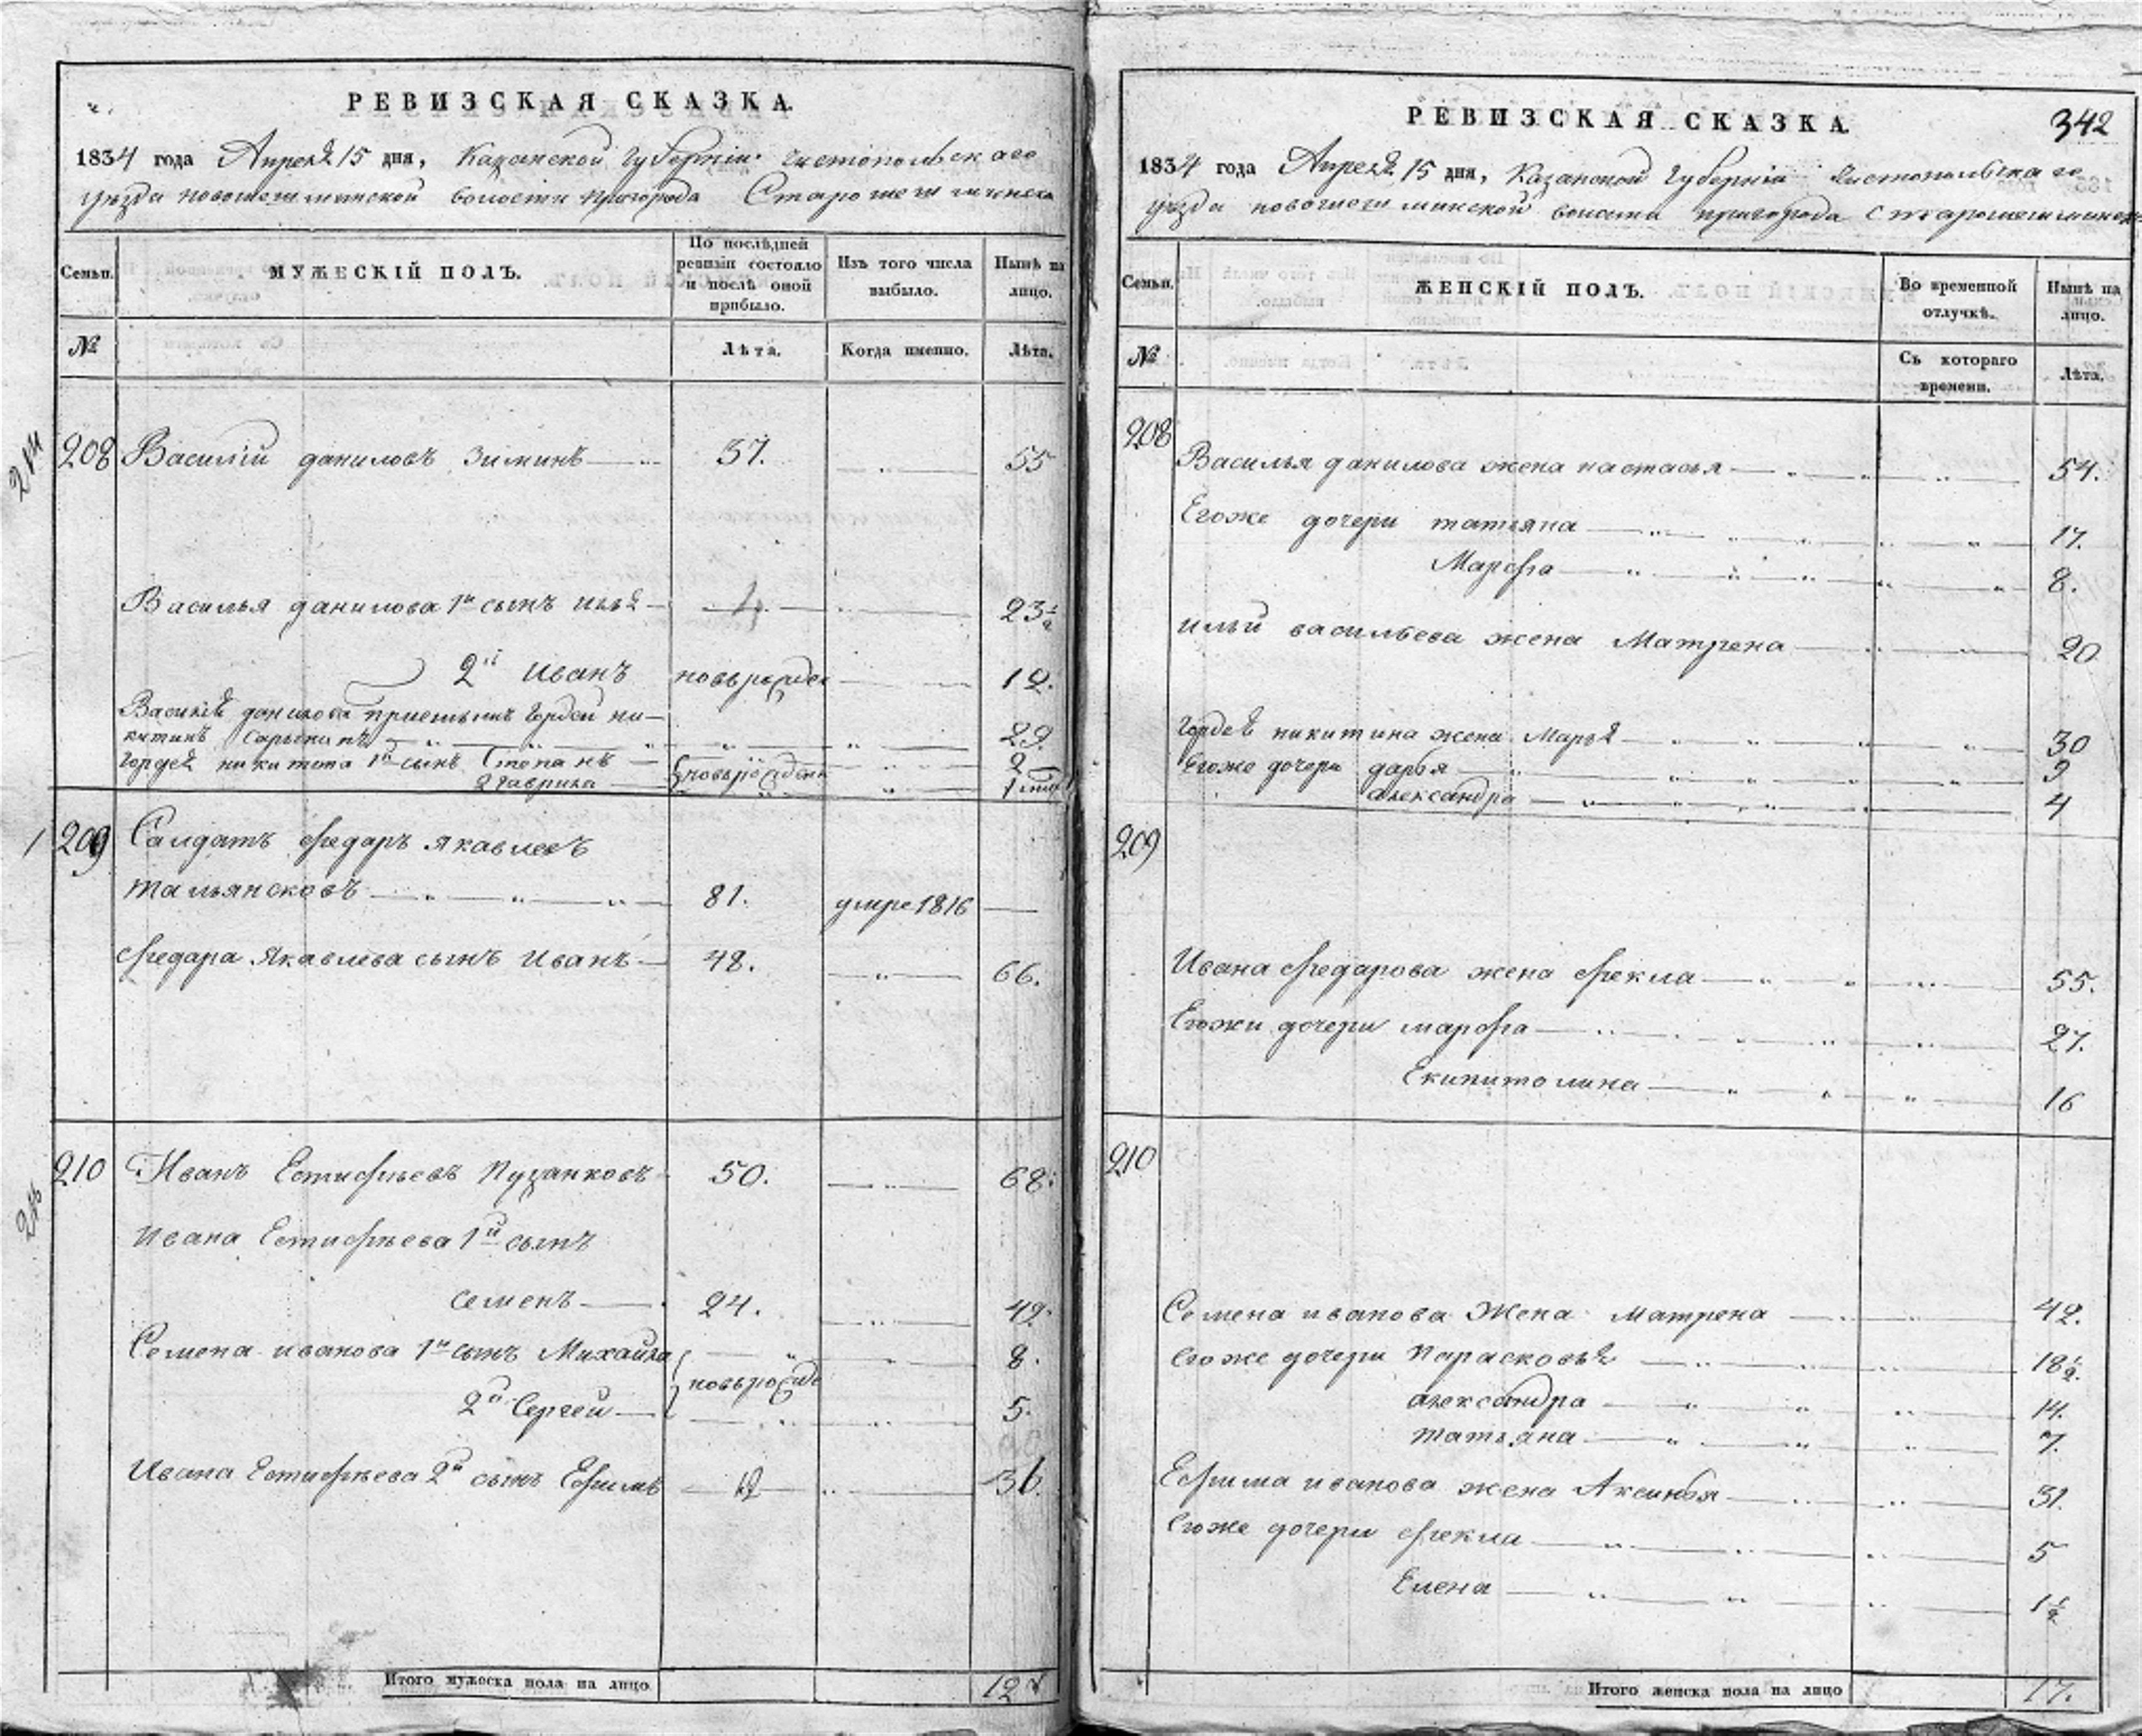 РЕВИЗСКАЯ СКАЗКА.
1834 года Апреля 15 дня, Казанской Губернии Чистопольскаго
уезда новошешминской волости пригорода Старошешминска
Семьи.
МУЖЕСКІЙ ПОЛЪ.
По послѣдней ревизіи состояло и послѣ оной прибыло.
Изъ того числа выбыло.
Нынѣ на лицо.
№
Лѣта.
Когда именно.
Лѣта.
214
208 Василій даниловъ Зиминъ 37. 55
Василья данилова 1й сынъ илья 4. 23½
2й иванъ новърожде 12.
Василія данилова приемышъ Гордей ни-
китинъ 29.
Гордея никитина 1й сынъ Степанъ 2
2 гаврила новърожден 1
1 209 Салдатъ Ѳедаръ якавлевъ
тальянсковъ 81. умре 1816
Ѳедара Якавлева сынъ иванъ 48. 66.
210 Иванъ Естифѣевъ Пузанковъ 50. 68.
ивана Естифѣева 1й сынъ
семенъ 24. 42.
Семена иванова 1й сынъ Михайла 8.
новърожде
2й Сергей 5.
Ивана Естифѣева 2й сынъ Ефимъ 12 30.
Итого мужеска пола на лицо 12
РЕВИЗСКАЯ СКАЗКА
342
1834 года Апреля 15 дня, Казанской Губерніи Чистопольскаго
уезда новошешминской волости пригорода старошешминска
Семьи.
ЖЕНСКІЙ ПОЛЪ.
Во временной отлучкѣ.
Нынѣ на лицо.
№
Съ котораго времени.
Лѣта.
208
Василья данилова жена настасья 54.
Егоже дочери татьяна 17.
Марфа 8.
ильи васильева жена Матрена 20
Гордея никитина жена Марья 30
Егоже дочери дарья 9
александра 4
209
Ивана Ѳедарова жена Ѳекла 55.
Егожи дочери марфа 27.
Екипитолина 16
210
Семена иванова Жена матрена 42.
Егоже дочери Парасковья 18½.
александра 14.
татьяна 7.
Ефима иванова жена Аксинья 31.
Егоже дочери Ѳекла 5
Елена 1½
Итого женска пола на лицо 17.